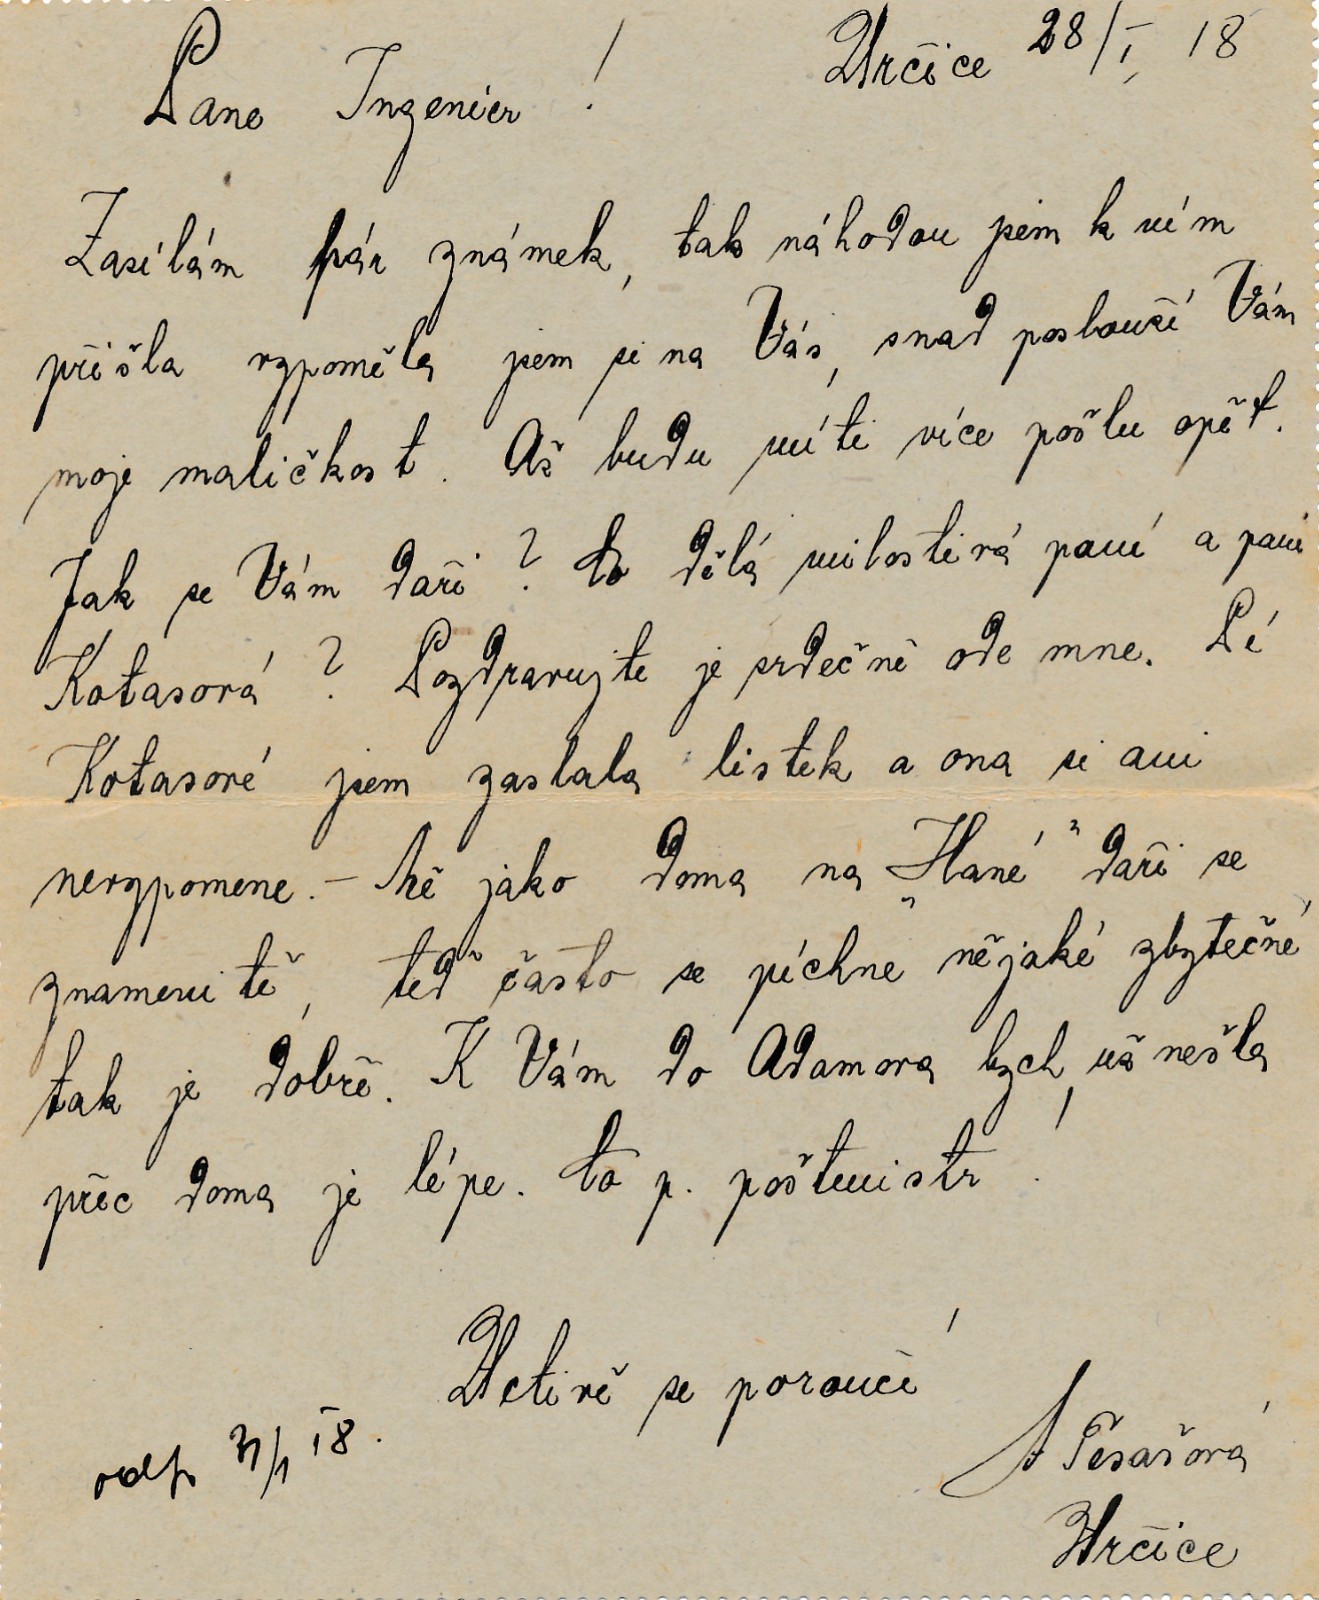 Určice 28/I. 18
Pane Ingenier!
Zasílám pár známek, tak náhodou jsem k ním
přišla vzpoměla jsem si na Vás, snad poslouží Vám
moje maličkost. Až budu míti více pošlu opět.
Jak se Vám daří? Co dělá milostivá paní a paní
Kotasová? Pozdravujte je srdečně ode mne. Pí
Kotasové jsem zaslala lístek a ona si ani
nevzpomene. – Mě jako doma na „Hané" daří se
znamenitě, teď často se píchne nějaké zbytečné
tak je dobře. K Vám do Adamova bych už nešla
přec doma je lépe. Co p. poštmistr!
Uctivě se poroučí
Určice
odp 31/1 18.